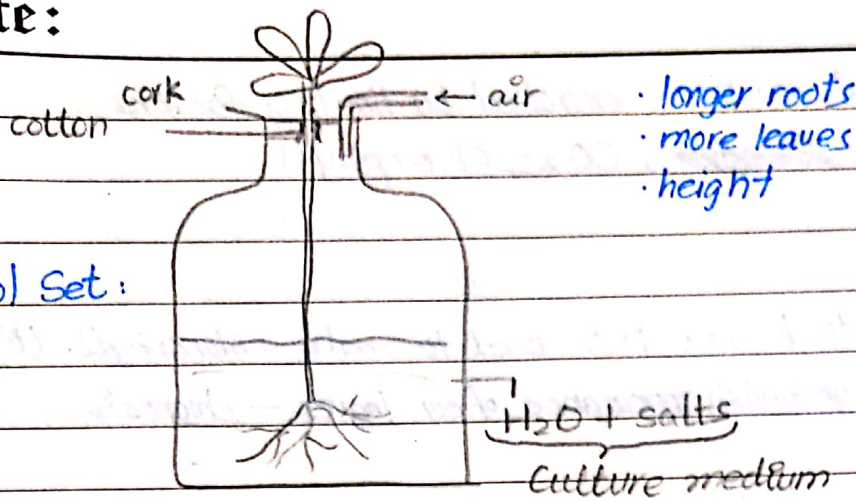 te:
cork
cotton
← air
· longer roots
· more leaves
· height
b) Set:
H₂O + salts
Culture medium